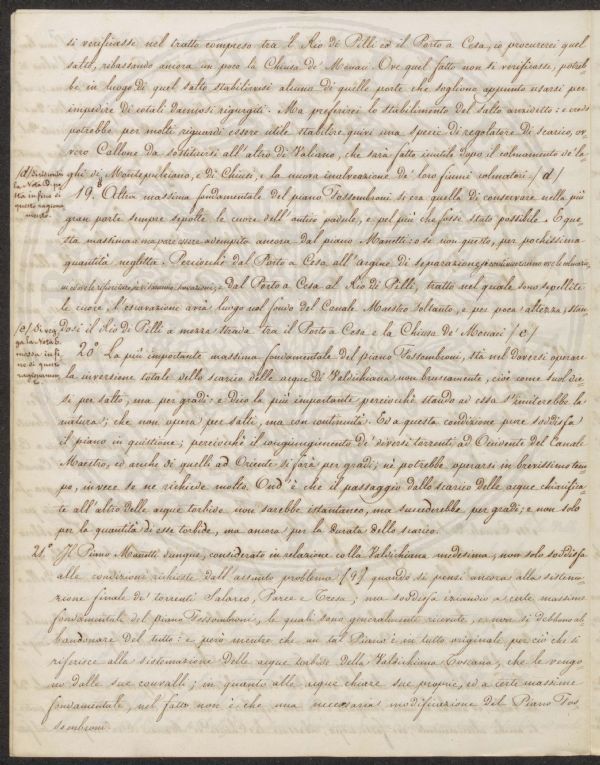 si verificasse nel tratto compreso tra 'l Rio de' Pilli ed il Porto a Cesa, io procurerei quel
salto, ribassando ancora un poco la Chiusa de' Monaci. Ove quel fatto non si verificasse, potreb-
be in luogo di quel salto stabilirvisi alcuna di quelle porte che sogliono appunto usarsi per
impedire di cotali dannosi rigurgiti. Ma preferirei lo stabilimento del salto anzidetto: e credo
potrebbe per molti riguardi essere utile stabilire quivi una specie di regolatore di scarico, ov-
vero Callone da sostituirsi all'altro di Valiano, che sarà fatto inutile dopo il colmamento de' la-
ghi di Montepulciano, e di Chiusi, e la nuova inalveazione de' loro fiumi colmatori. (d)
(d) Si veda
la Nota D. po
sta in fine di
questo ragiona
mento.
19.° Altra massima fondamentale del piano Fossombroni si era quella di conservare nella più
gran parte sempre sepolte le cuore dell'antico padule, e pel più che fosse stato possibile. E que-
sta massima ancora adempita ancora dal piano Manetti: o se non questo, per pochissima
quantità negletta. Perciocchè dal Porto a Cesa all'argine di separazione
dal Porto a Cesa al Rio di Pilli, tratto nel quale sono sepellite
le cuore, l'escavazione avrà luogo nel fondo del Canale Maestro soltanto, e per poca altezza, stan-
dosi il Rio di Pilli a mezza strada tra il Porto a Cesa e la Chiusa de' Monaci (e)
(e) Si veg
ga la Nota E.
messa in fi
ne di questo
ragionamen
to.
20.° La più importante massima fondamentale del piano Fossombroni, stà nel doversi operare
la inversione totale dello scarico delle acque di Valdichiana non bruscamente, cioè come suol dir
si per salto, ma per gradi: e dico la più importante perciocchè stando ad essa s'imiterebbe la
natura; che non opera per salti, ma con continuità. Ed a questa condizione pure soddisfa
il piano in questione; perciocchè il congiungimento de' diversi torrenti ad Occidente del Canale
Maestro, ed anche di quelli ad Oriente si farà per gradi; nè potrebbe operarsi in brevissimo tem
po, invece se ne richiede molto. Ond'è che il passaggio dallo scarico delle acque chiarifica-
te all'altro delle acque torbide non sarebbe istantaneo, ma succederebbe per gradi; e non solo
per la quantità di esse torbide, ma ancora per la durata dello scarico.
21.° Il Piano Manetti dunque, considerato in relazione colla Valdichiana medesima, non solo soddisfa
alle condizioni richieste dall'assunto problema (9) quando si pensi ancora alla sistema-
zione finale de' torrenti Salarco, Parce e Tresa; ma soddisfa eziandio a certe massime
fondamentali del piano Fossombroni, le quali sono generalmente ricevute, e non si debbono ab
bandonare del tutto: e però mentre che un tal Piano è in tutto originale per ciò che si
riferisce alla sistemazione delle acque torbide della Valdichiana Toscana, che le vengo
no dalle sue convalli; in quanto alle acque chiare sue proprie, ed a certe massime
fondamentali, nel fatto non è che una necessaria modificazione del Piano Fos
sombroni.